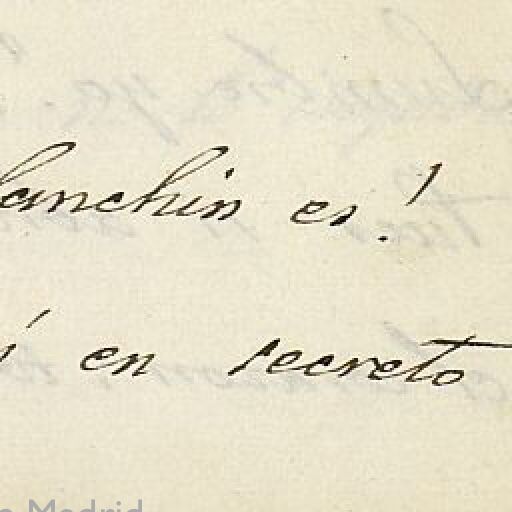 lanchin es!
í en secreto
Madrid